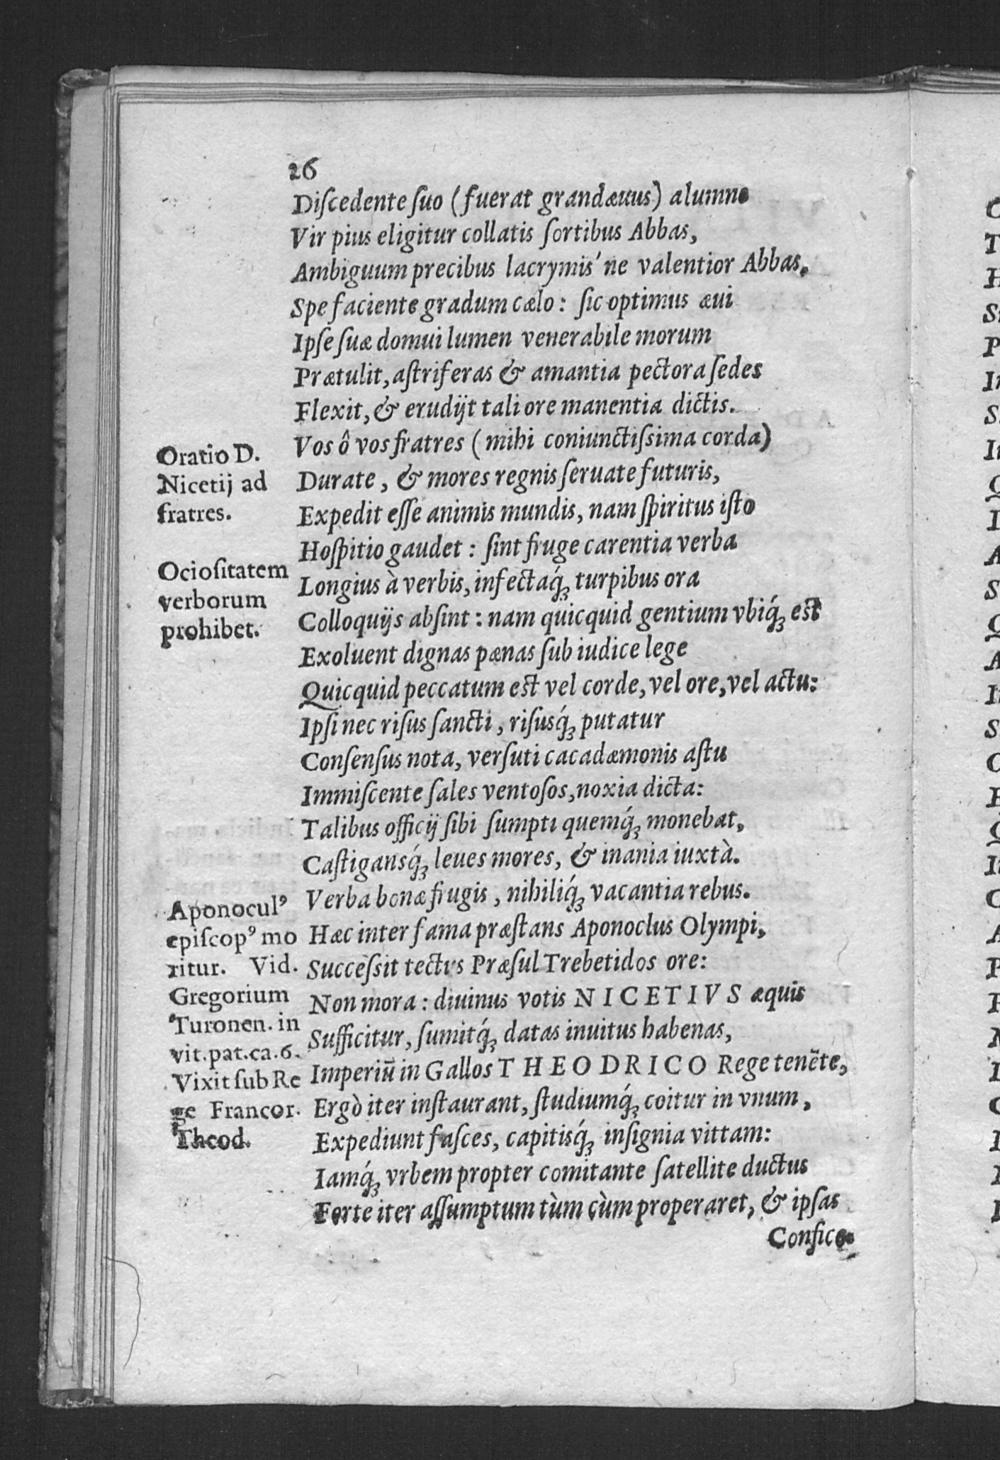 26
Diſcedente ſuo (fuerat grandæuus) alumno
Vir pius eligitur collatis ſortibus Abbas,
Ambiguum precibus lacrymis'ne valentior Abbas,
Spe faciente gradum cælo: ſic optimus æui
Ipſe ſuæ domui lumen venerabile morum
Prætulit, aſtriferas & amantia pectora ſedes
Flexit, & erudijt tali ore manentia dictis.
Vos ô vos fratres (mihi coniunctiſsima corda)
Oratio D.
Nicetij ad
fratres.
Durate, & mores regnis ſeruate futuris,
Expedit eſſe animis mundis, nam ſpiritus iſto
Hoſpitio gaudet: ſint fruge carentia verba
Ocioſitatem
verborum
prohibet.
Longius à verbis, infectaq́ꝫ turpibus ora
Colloquijs abſint: nam quicquid gentium vbiq́ꝫ est
Exoluent dignas pænas ſub iudice lege
Quicquid peccatum est vel corde, vel ore, vel actu:
Ipſi nec riſus ſancti, riſusq́ꝫ putatur
Conſenſus nota, verſuti cacadæmonis aſtu
Immiſcente ſales ventoſos, noxia dicta:
Talibus officij ſibi ſumpti quemq́ꝫ monebat,
Caſtigansq́ꝫ leues mores, & inania iuxtà.
Verba bonæ frugis, nihiliq́ꝫ vacantia rebus.
Aponoculꝰ
epiſcopꝰ mo
ritur. Vid.
Gregorium
Turonen. in
vit. pat. ca. 6.
Vixit ſub Re
ge Francor.
Theod.
Hæc inter fama præſtans Aponoclus Olympi,
Succeſsit tectis Præſul Trebetidos ore:
Non mora: diuinus votis NICETIVS æquis
Sufficitur, ſumitq́ꝫ datas inuitus habenas,
Imperiū in Gallos THEODRICO Rege tenēte,
Ergò iter inſtaurant, ſtudiumq́ꝫ coitur in vnum,
Expediunt faſces, capitisq́ꝫ inſignia vittam:
Iamq́ꝫ vrbem propter comitante ſatellite ductus
Forte iter aſſumptum tùm cùm properaret, & ipſas
Confice-